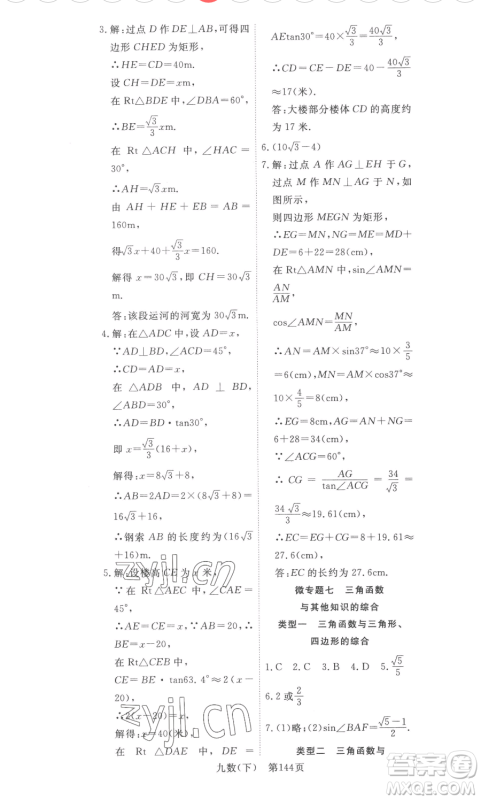 3. 解:过点 D 作 DE⊥AB,可得四
边形 CHED 为矩形,
∴HE=CD=40m.
设 CH=DE=xm,
在 Rt△BDE 中,∠DBA=60°,
∴BE=√3/3 xm.
在 Rt △ACH 中,∠HAC=
30°,
∴AH=√3xm.
由 AH + HE + EB = AB =
160m,
得√3x+40+√3/3x=160.
解得 x=30√3,即 CH=30√3m.
答:该段运河的河宽为 30√3m.
4. 解:在△ADC 中,设 AD=x,
∵AD⊥BD,∠ACD=45°,
∴CD=AD=x,
在 △ADB 中,AD⊥BD,
∠ABD=30°,
∴AD=BD·tan30°,
即 x=√3/3(16+x),
解得:x=8√3+8,
∴AB=2AD=2×(8√3+8)=
16√3+16,
∴钢索 AB 的长度约为(16√3
+16)m.
5. 解:设楼高 CE 为 x 米,
∵在 Rt△AEC 中,∠CAE=
45°,
∴AE=CE=x,
∵AB=20,∴BE=x-20,
在 Rt△CEB 中,
CE=BE·tan63.4°≈2(x-
20),
∴2(x-20)=x,
解得:x=40(米),
∵在 Rt△DAE 中,DE=
AEtan30°=40×√3/3=40√3/3,
∴CD=CE-DE=40-40√3/3
≈17(米).
答:大楼部分楼体 CD 的高度约
为 17 米.
6. (10√3-4)
7. 解:过点 A 作 AG⊥EH 于 G,
过点 M 作 MN⊥AG 于 N,如
图所示,
则四边形 MEGN 为矩形,
∴EG=MN,NG=ME=MD+
DE=6+22=28(cm),
在Rt△AMN 中,sin∠AMN=
AN/AM,
cos∠AMN=MN/AM,
∴AN=AM×sin37°≈10×3/5
=6(cm),MN=AM×cos37°≈
10×4/5=8(cm),
∴EG=8cm,AG=AN+NG=
6+28=34(cm),
∵∠ACG=60°,
∴CG=AG/tan∠ACG=34/√3=
34√3/3≈19.6(cm),
∴EC=EG+CG≈8+19.6=
27.6(cm),
答:EC 的长度约为 27.6cm.
微专题七 三角函数
与其他知识的综合
类型一 三角函数与三角形、
四边形的综合
1. C 2. C 3. D 4. D 5. √5/5
6. 2 或 2/3
7. (1)略;(2)sin∠BAF=(√5-1)/2.
类型二 三角函数与
九数(下) 第144页
zyjl.cn
zyjl.cn
作业帮